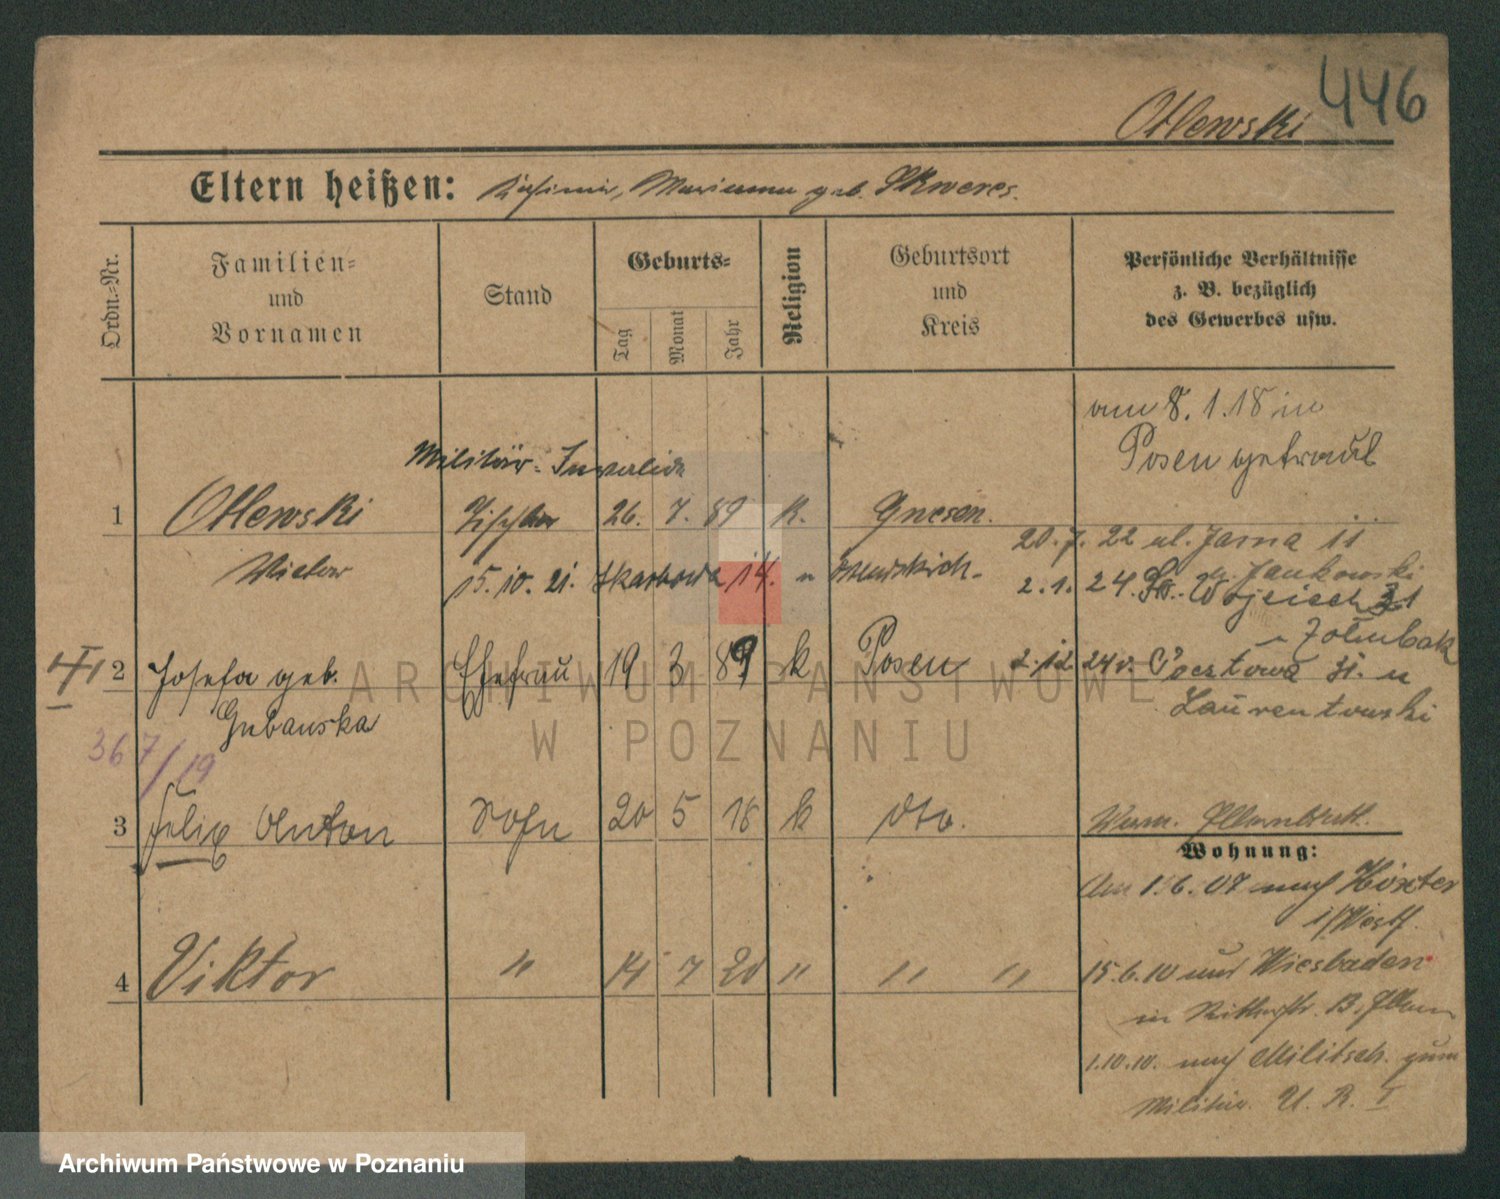 446
Otlewski
Eltern heißen: Kasimir, Marianna geb. Skweres.
Ordn.=Nr.
Familien=
und
Vornamen
Stand
Geburts=
Tag
Monat
Jahr
Religion
Geburtsort
und
Kreis
Persönliche Verhältnisse
z. B. bezüglich
des Gewerbes usw.
am 8. 1. 18 in
Posen getraut
Militär-Invalide
1 Otlewski Tischler 26. 7. 89 K. Gnesen.
20. 7. 22 ul. Jasna 11
Victor 15. 10. 21. Skarbowa 14.
2. 1. 24. Św. Wojciech 31
Jankowski
2 Josefa geb. Ehefrau 19 3 89 k Posen 2. 12 24 v. Pocztowa 31. u
Gubanska
Laurentowski
367/19
3 Felix Anton Sohn 20 5 18 k dto.
Wohnung:
Am 1. 6. 07 nach Höxter
i/Westf.
4 Viktor " 14 7 20 " " "
15. 6. 10 von Wiesbaden
in Ritterstr.
1. 10. 10. nach Militsch. zum
Militär. U. R. I
ARCHIWUM PAŃSTWOWE
W POZNANIU
Archiwum Państwowe w Poznaniu